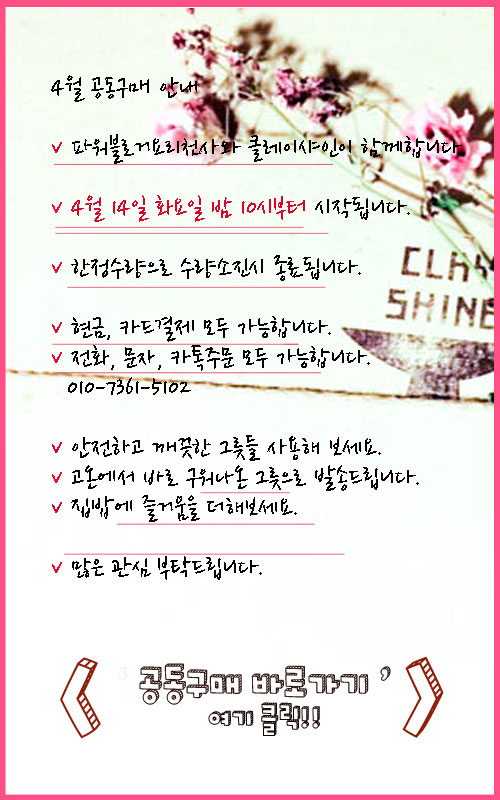 4월 공동구매 안내
v 파워블로거요리천사와 클레이샤인이 함께합니다.
v 4월 14일 화요일 밤 10시부터 시작됩니다.
v 한정수량으로 수량소진시 종료됩니다.
CLAY
SHINE
v 현금, 카드결제 모두 가능합니다.
v 전화, 문자, 카톡주문 모두 가능합니다.
010-7361-5102
v 안전하고 깨끗한 그릇들 사용해 보세요.
v 고온에서 바로 구워나온 그릇으로 발송드립니다.
v 집밥에 즐거움을 더해보세요.
v 많은 관심 부탁드립니다.
' 공동구매 바로가기 '
여기 클릭!!